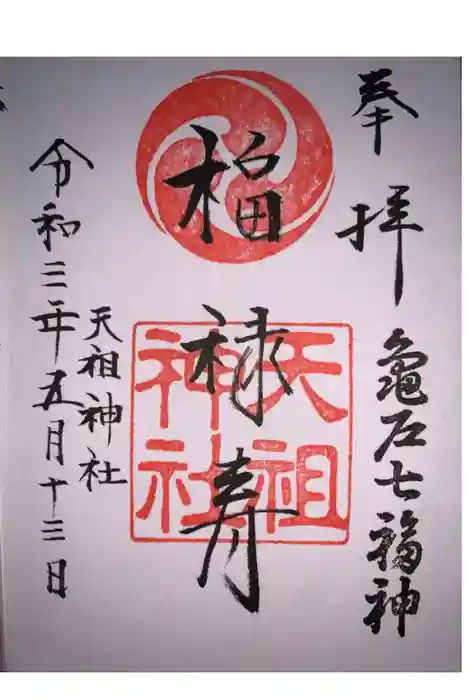 奉拝 亀戸七福神
福禄寿
天祖神社
天祖神社
令和三年五月十三日